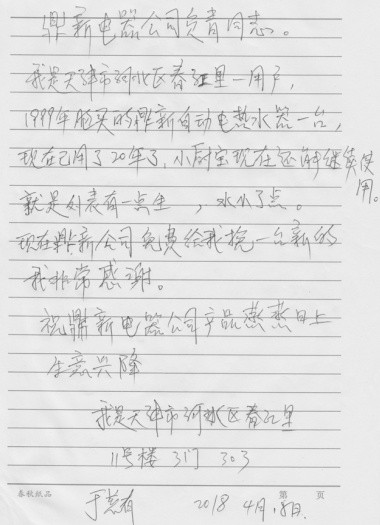 鼎新电器公司负责同志。
我是天津市河北区春江里一用户,
1999年购买的鼎新自动电热水器一台,
现在已用了20年了,小厨宝现在还能继续使用。
就是外表有一点生 ,水小了点。
现在鼎新公司免费给我换一台新的
我非常感谢。
祝鼎新电器公司产品蒸蒸日上
生意兴隆
我是天津市河北区春江里
11号楼 3门 303
春秋纸品 第 页
于 2018 4月18日.